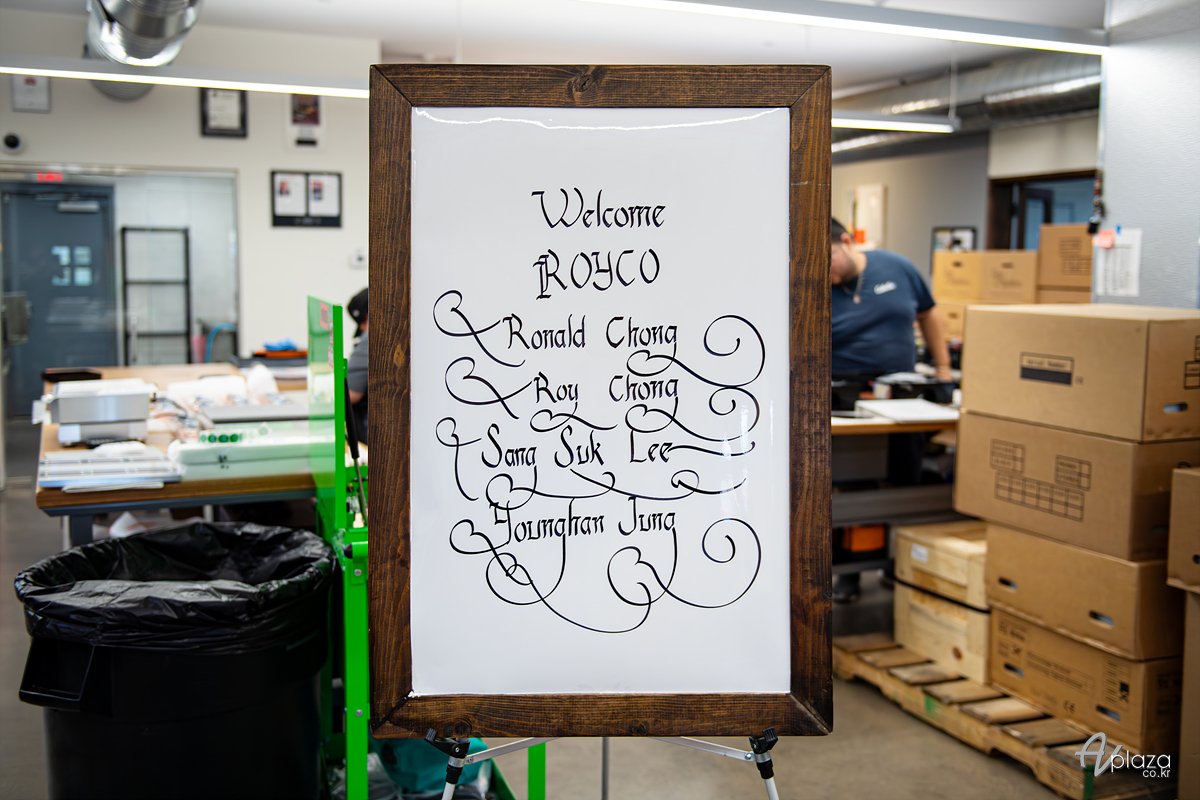 Welcome
ROYCO
Ronald Chong
Roy Chong
Sang Suk Lee
Younghan Jung
AVplaza
co.kr